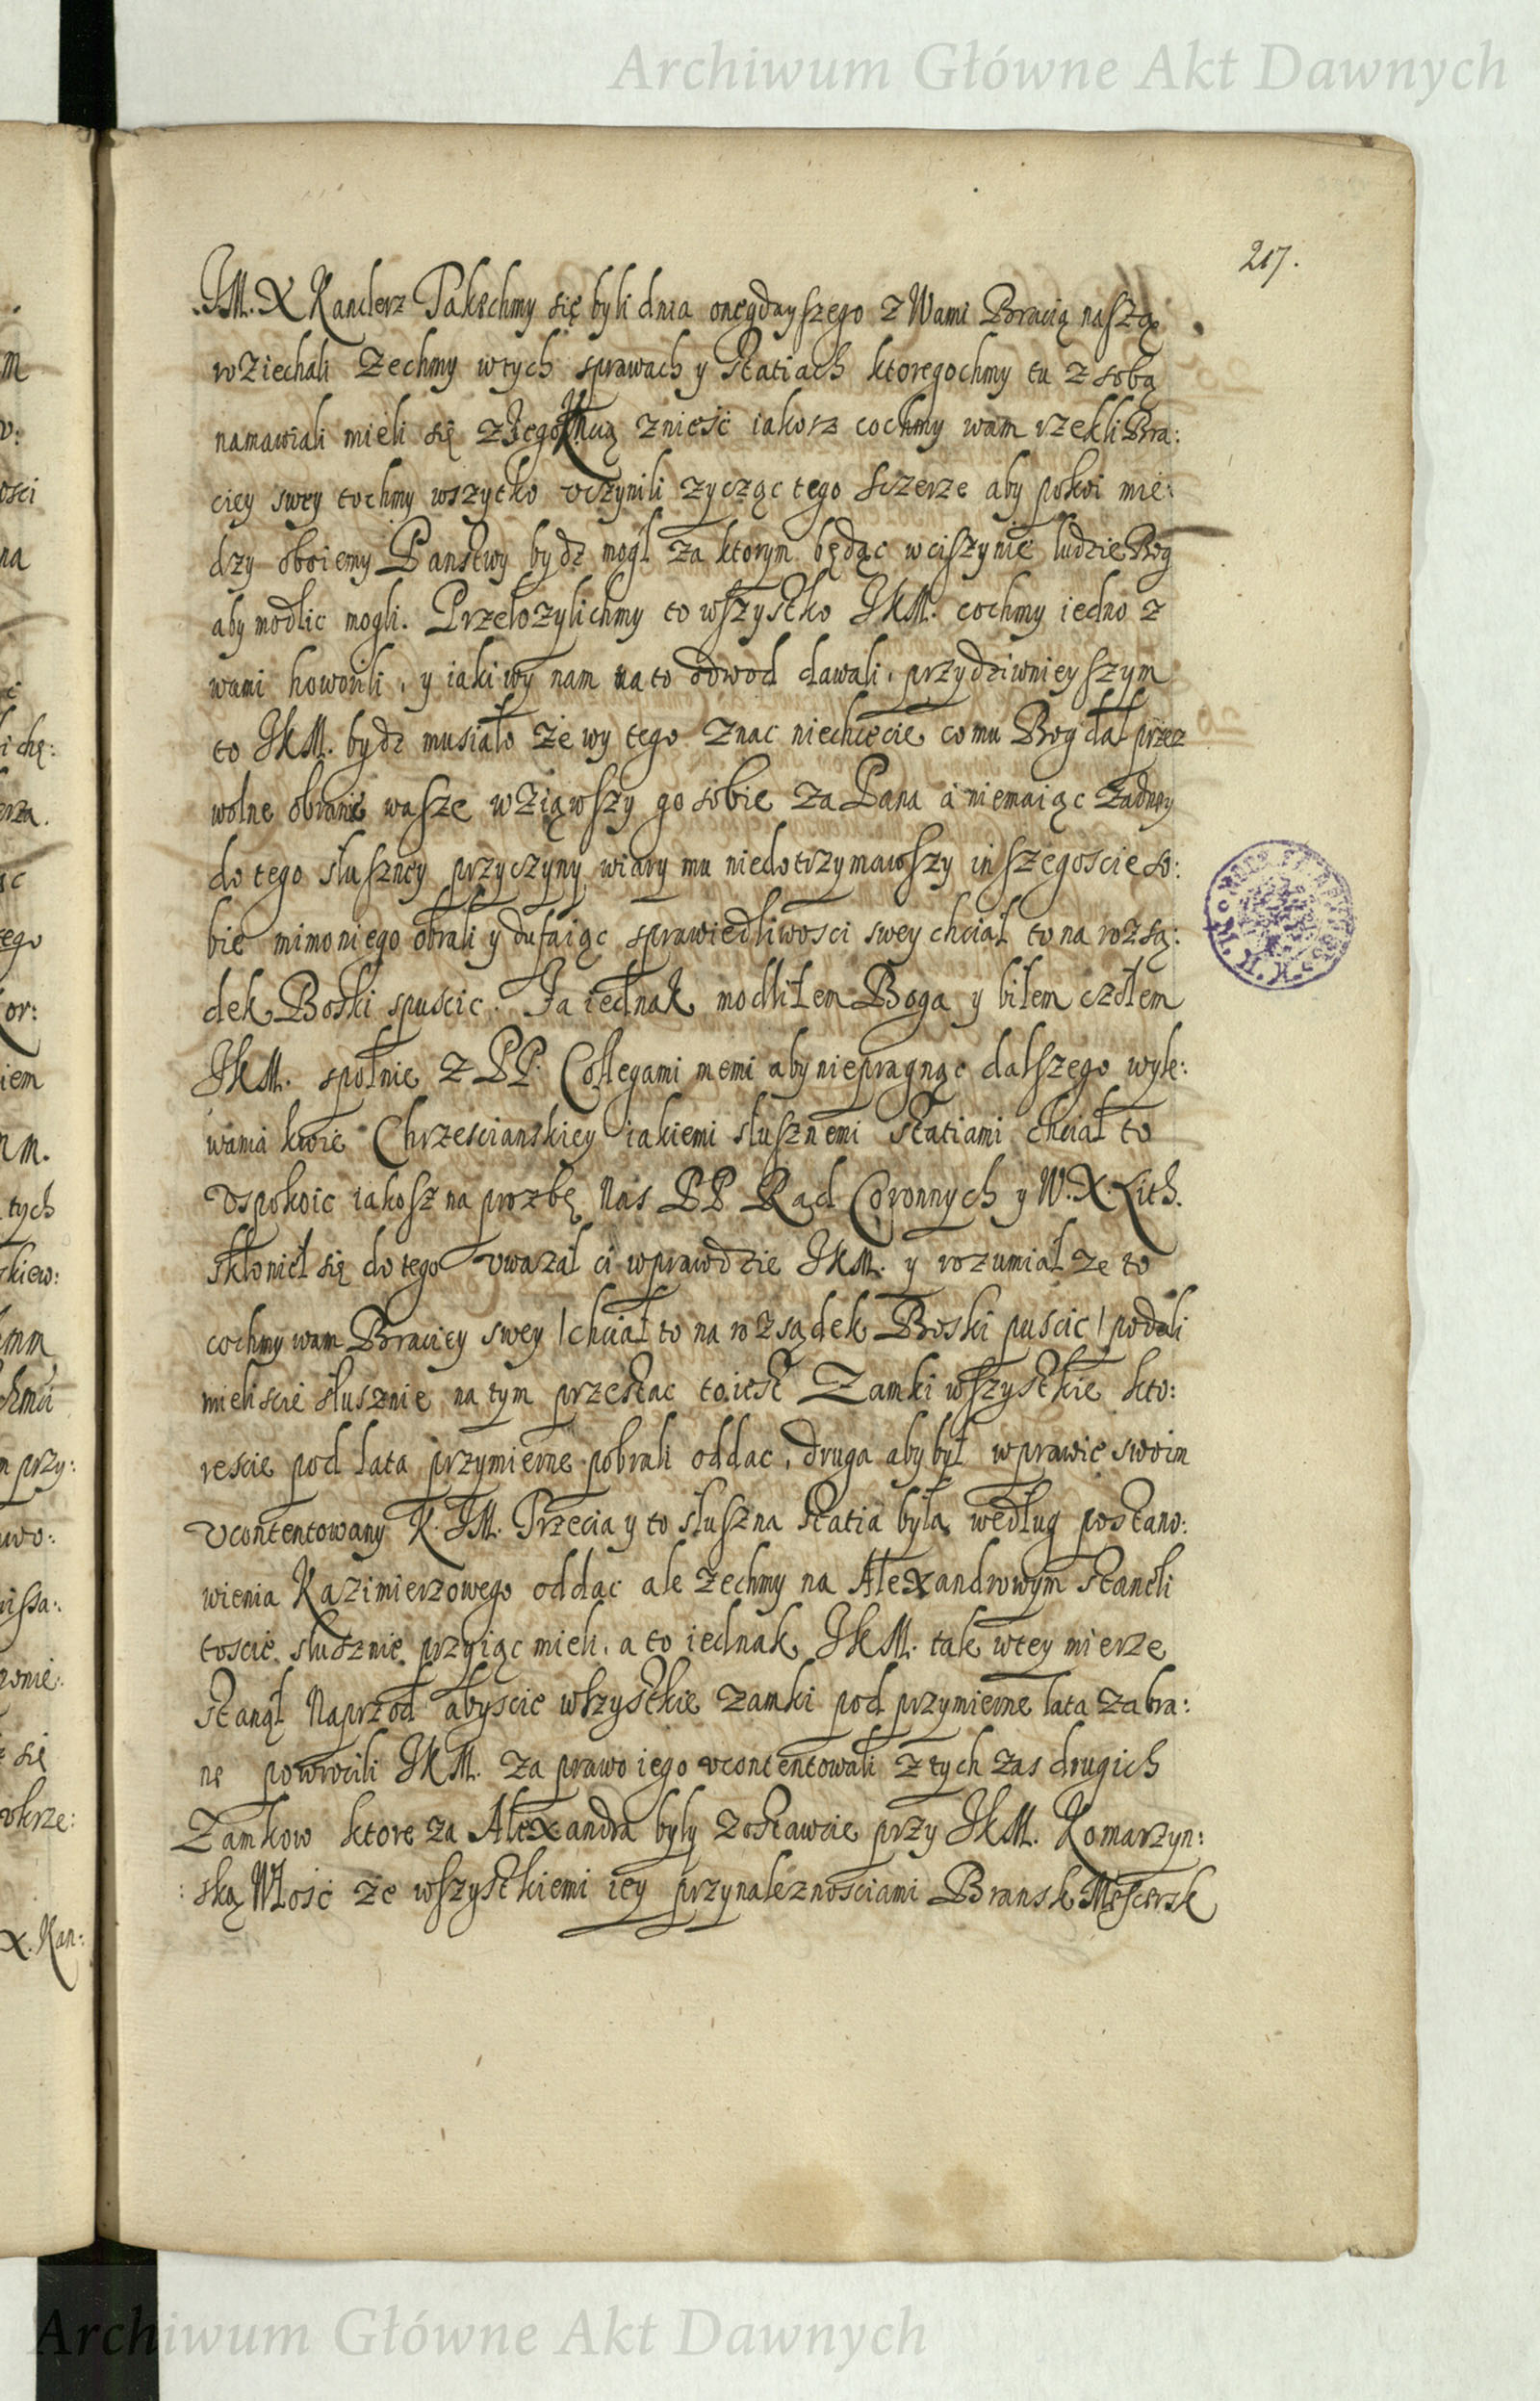 Archiwum Główne Akt Dawnych
217.
JM. X Kanclerz Takechmy się byli dnia onegdayszego z Wami Bracią naszą
roziechali zechmy wtych sprawach y statiach ktoregochmy tu z sobą
namawiali mieli się z Jego Kr. Mcią znieść iakosz cochmy wam rzekli Bra:
ciey swey tochmy wszytko uczynili zycząc tego sczerze aby pokoi mie:
dzy oboiemy Państwy bydz mogł za ktorym będąc wciszynie ludzie Bog
aby modlic mogli. Przełozylichmy to wszystko JkM. cochmy iedno z
wami howorili, y iaki wy nam na to odwod dawali, przydziwnieyszym
to JkM. bydz musiało że wy tego znac niechcecie co mu Bog dał przez
wolne obranie wasze wziąwszy go sobie za Pana a niemaiąc żadney
do tego słuszney przyczyny wiary mu niedotrzymawszy inszegoscie so:
bie mimo niego obrali y dufaiąc sprawiedliwosci swey chciał to na rozsą:
dek Boski spuscic. Ja iednak modliłem Boga y biłem czołem
JkM. społnie z PP. Collegami memi aby niepragnąc dalszego wyle:
wania krwie Chrzescianskiey iakiemi słusznemi statiami chciał to
uspokoic iakosz na prozbę Nas PP Rad Coronnych y W. X. Lith.
skłonił się do tego uwazał ci wprawdzie JkM. y rozumiał ze to
cochmy wam Braciey swey /chciał to na rozsądek Boski puscic/ podali
mieliscie słusznie na tym przestac to iest Zamki wszystkie kto:
rescie pod lata przymierne pobrali oddac, druga aby był wprawie swoim
ucontentowany K. JM. Trzecia y to słuszna statia była według postano:
wienia Kazimierzowego oddac ale zechmy na Alexandrowym stanęli
toscie słusznie przyiąc mieli, a to iednak JkM. tak wtey mierze
stanął Naprzod abyscie wszystkie zamki pod przymierne lata zabra:
ne powrocili JKM. za prawo iego ucontentowali z tych zas drugich
Zamkow ktore za Alexandra były zostawcie przy JkM. Komarzyn:
:ską Włość ze wszystkiemi iey przynaleznosciami Bransk Mescersk
Archiwum Główne Akt Dawnych